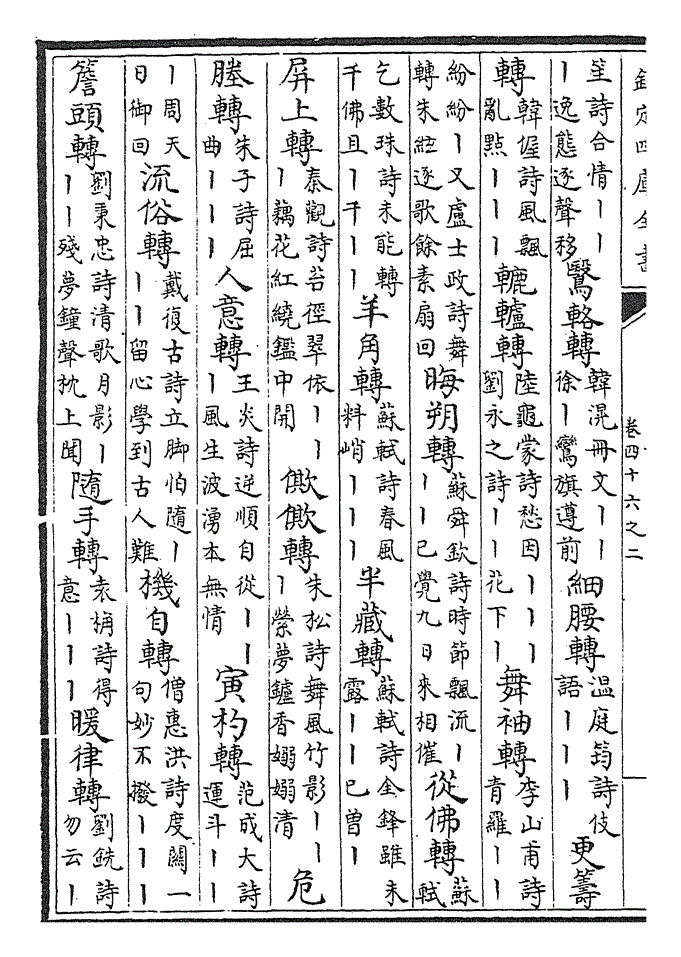 欽定四庫全書 卷四十六之二
笙詩合情丨丨丨逸態逐聲移 鷖輅轉 韓滉冊文丨丨徐丨鸞旗遵前 細腰轉 温庭筠詩伎語丨丨丨 更籌
轉 韓偓詩風飄亂點丨丨丨 轆轤轉 陸龜蒙詩愁因丨丨丨劉永之詩丨丨花下丨 舞袖轉 李山甫詩青羅丨丨
紛紛丨又盧士政詩舞轉朱紅逐歌餘素扇回 晦朔轉 蘇舜欽詩時節飄流丨丨丨已覺九日來相催 從佛轉 蘇軾
乞數珠詩未能轉千佛且丨千丨丨 羊角轉 蘇軾詩春風料峭丨丨丨 半藏轉 蘇軾詩全鋒雖未露丨丨已曾丨
屏上轉 秦觀詩苔徑翠依丨丨丨藕花紅繞鑑中開 僛僛轉 朱松詩舞風竹影丨丨丨縈夢鑪香嫋嫋清 危
塍轉 朱子詩屈曲丨丨丨 人意轉 王炎詩逆順自從丨丨丨風生波湧本無情 寅杓轉 范成大詩運斗丨丨
丨周天日御回 流俗轉 戴復古詩立脚怕隨丨丨丨留心學到古人難 機自轉 僧惠洪詩度關一句妙不撥丨丨丨
簷頭轉 劉秉忠詩清歌月影丨丨丨殘夢鐘聲枕上聞 隨手轉 袁桷詩得意丨丨丨 暖律轉 劉詵詩勿云丨